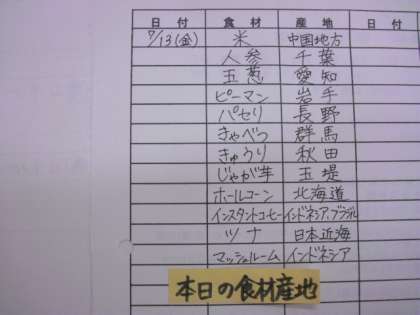 日付 食材 産地 日付
7/13(金) 米 中国地方
人参 千葉
玉葱 愛知
ピーマン 岩手
パセリ 長野
きゃべつ 群馬
きゅうり 秋田
じゃが芋 玉堤
ホールコーン 北海道
インスタントコーヒー インドネシア、ブラジル
ツナ 日本近海
マッシュルーム インドネシア
本日の食材産地